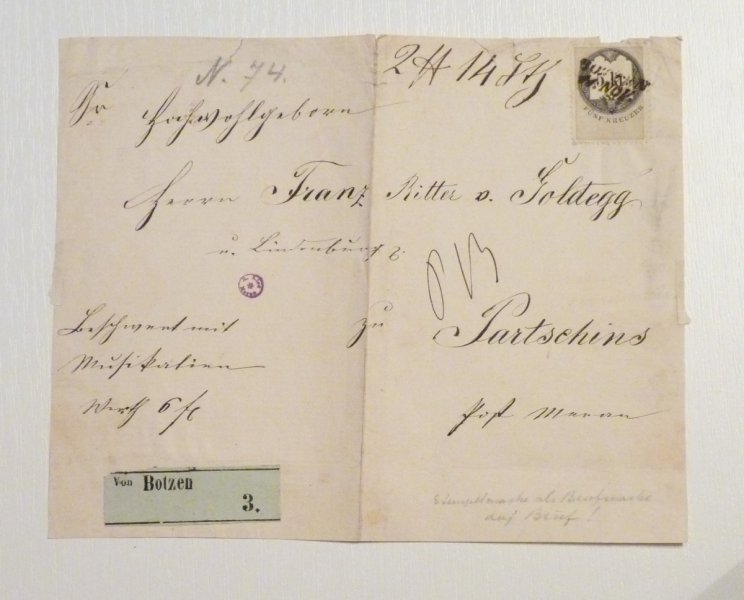 N. 74.
2 ℔ 14 Lth
5 KR
FÜNF KREUZER
Sr Hochwohlgeborn
Herrn Franz Ritter v. Goldegg
u. Lindenburg
zu Partschins
Beschwert mit
Musikalien
Werth 6 fl
Post Meran
Von Botzen
3.
Stempelmarke als Briefmarke
auf Brief!